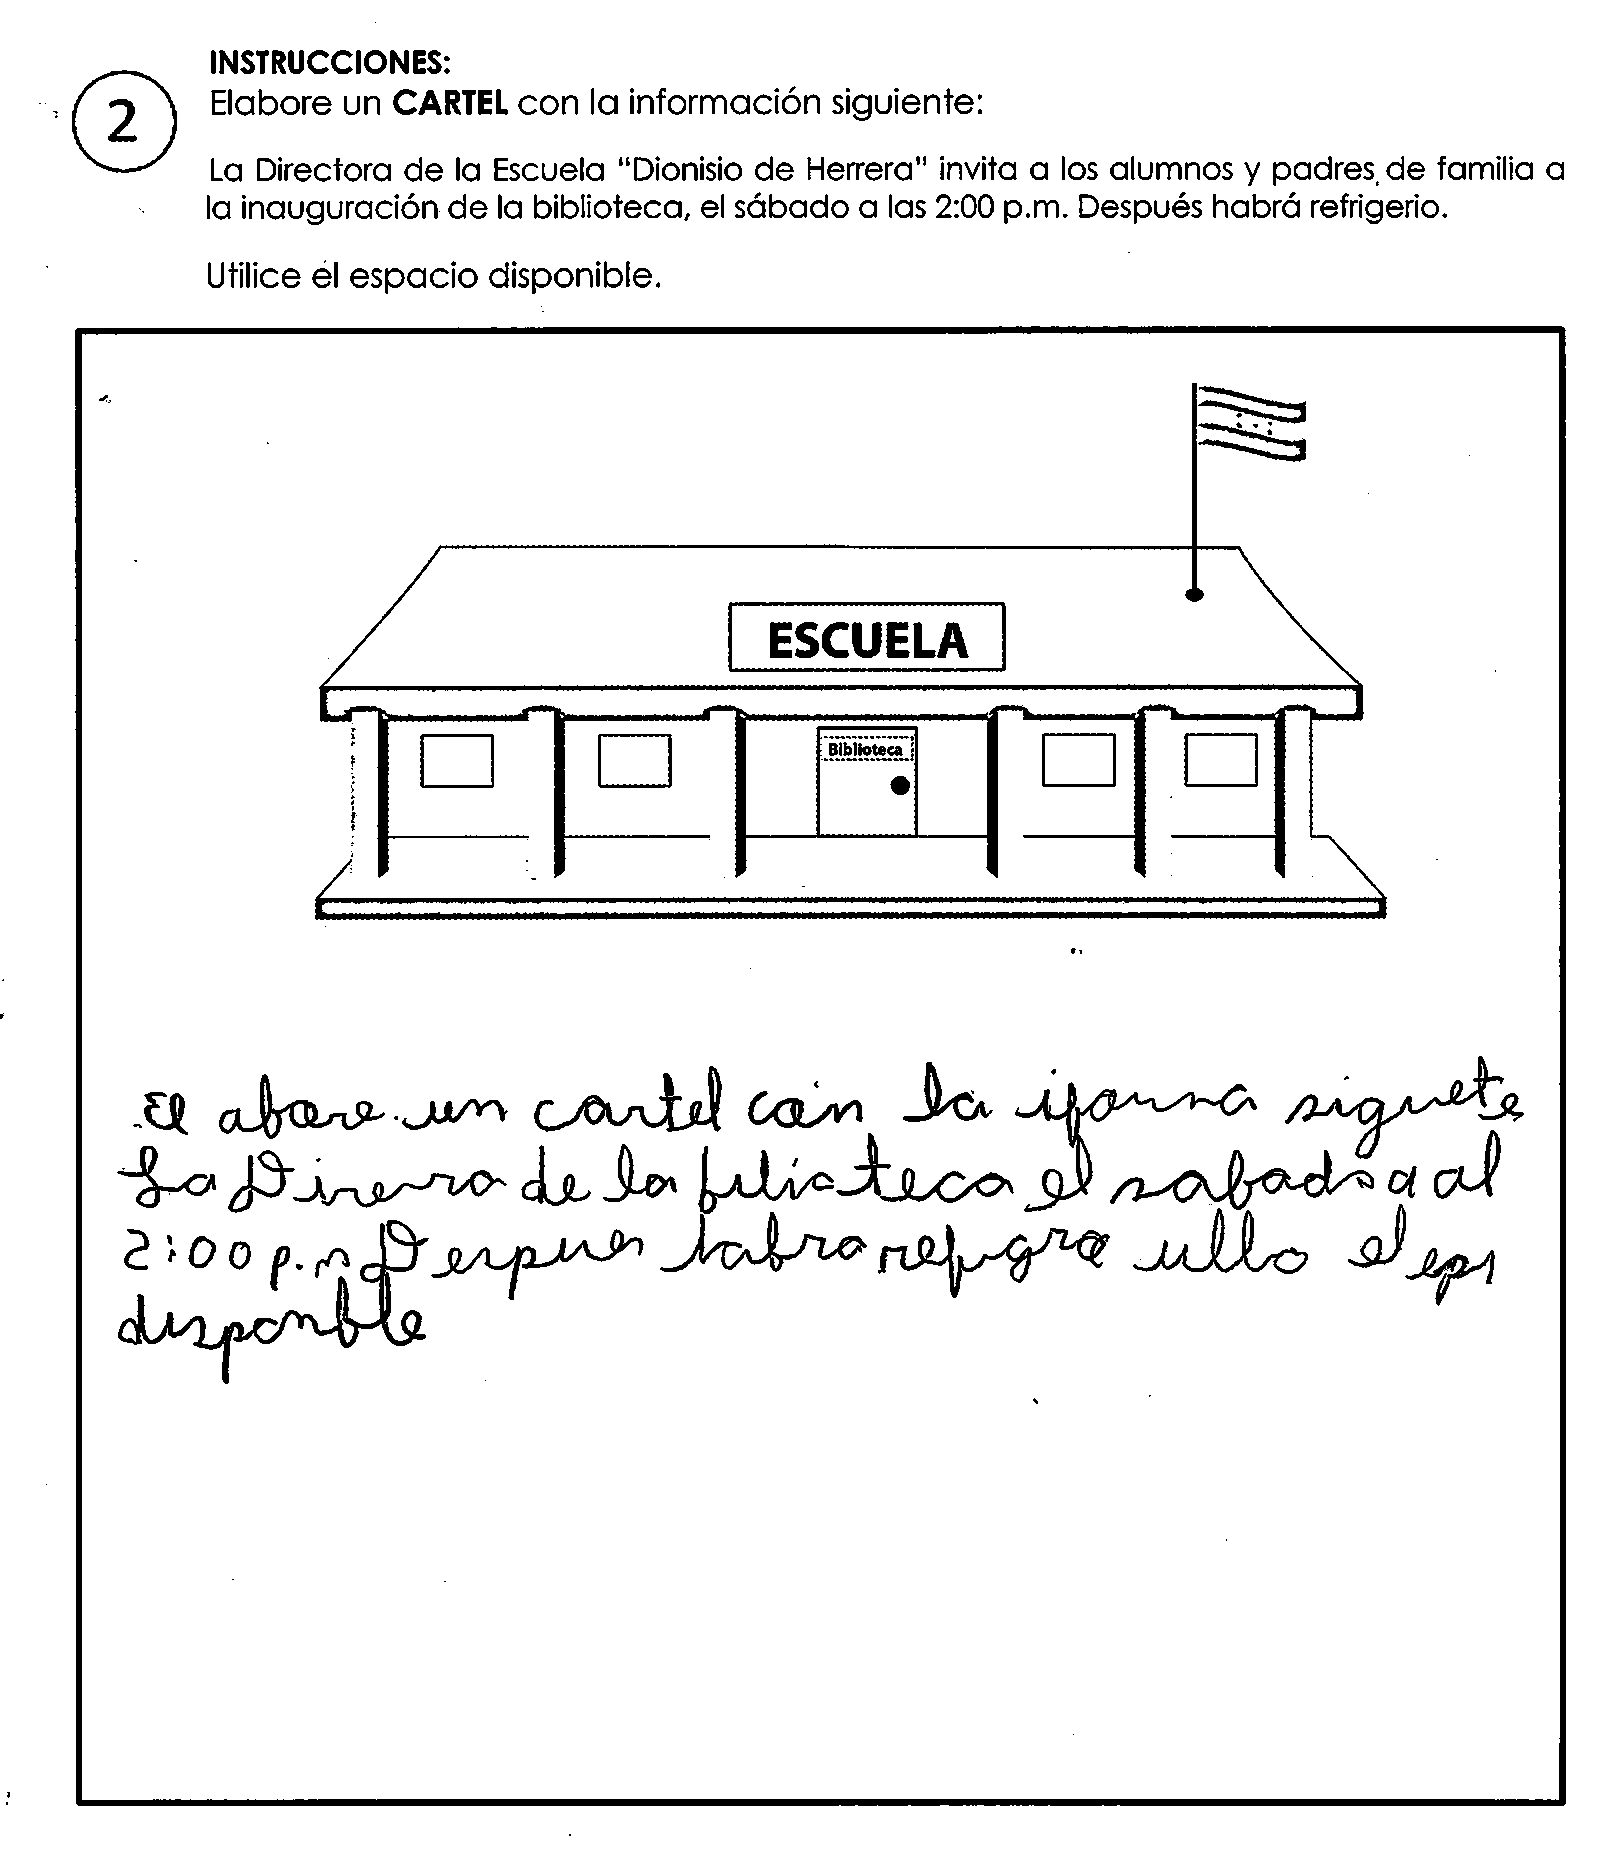 INSTRUCCIONES:
2
Elabore un CARTEL con la información siguiente:
La Directora de la Escuela "Dionisio de Herrera" invita a los alumnos y padres de familia a
la inauguración de la biblioteca, el sábado a las 2:00 p.m. Después habrá refrigerio.
Utilice el espacio disponible.
ESCUELA
Biblioteca
El abore un cartel con la iforma siguete
La Direra de la filioteca el sabado a al
2:00 p.m Despues habra refigra el
disponble